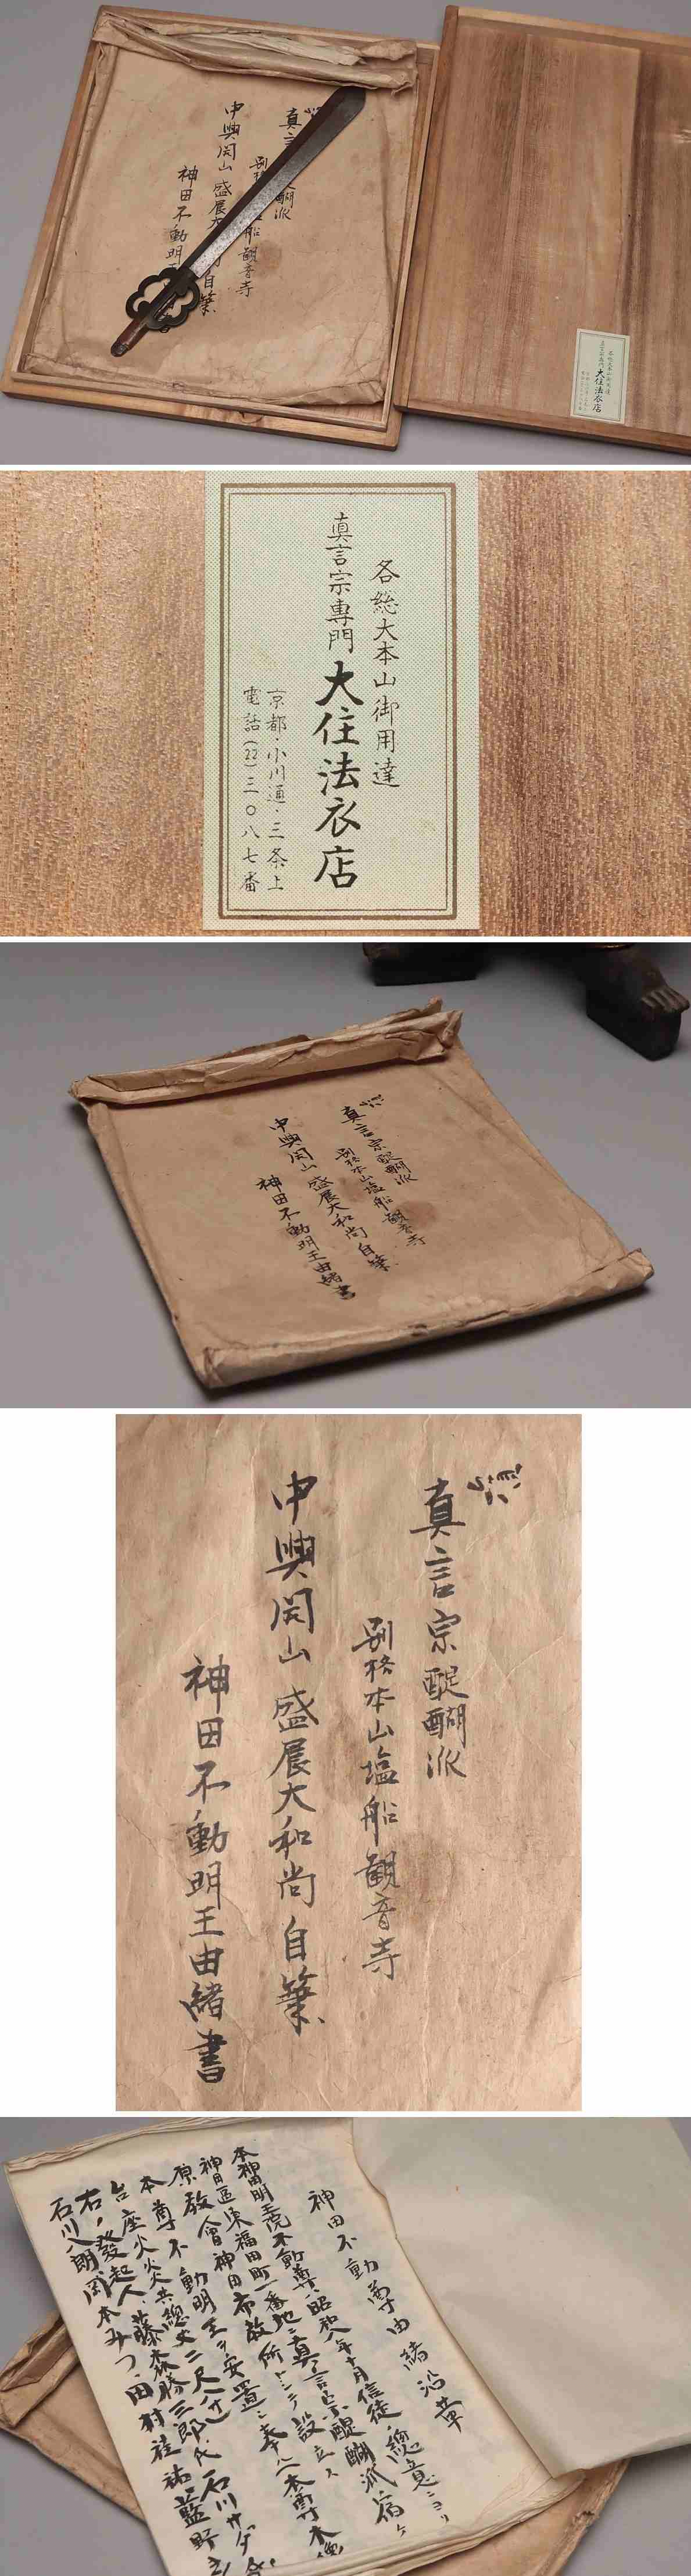 真言
中興開山 盛展大 自筆
船観音寺
神田不動明
各総大本山御用達
真言宗専門 大住法衣店
各総大本山御用達
真言宗専門 大住法衣店
京都・小川通・三条上
電話(22)三〇八七番
真言宗醍醐派
別格本山塩船観音寺
中興開山 盛展大和尚 自筆
神田不動明王由緒書
真言宗醍醐派
別格本山塩船観音寺
中興開山 盛展大和尚 自筆
神田不動明王由緒書
神田不動尊由緒沿革
本神田明王院不動尊ハ昭和八年十月信徒ノ總意ニヨリ
神田區東福田町一番地ニ真言宗醍醐派宿
原教會神田布教所トシテ設立ス
本尊不動明王ヲ安置シ奉ル
台座火炎共總丈二尺八寸
右ノ發起人ハ藤森勝三郎氏 石川サダ
石川八朗 岡本みつ 田村